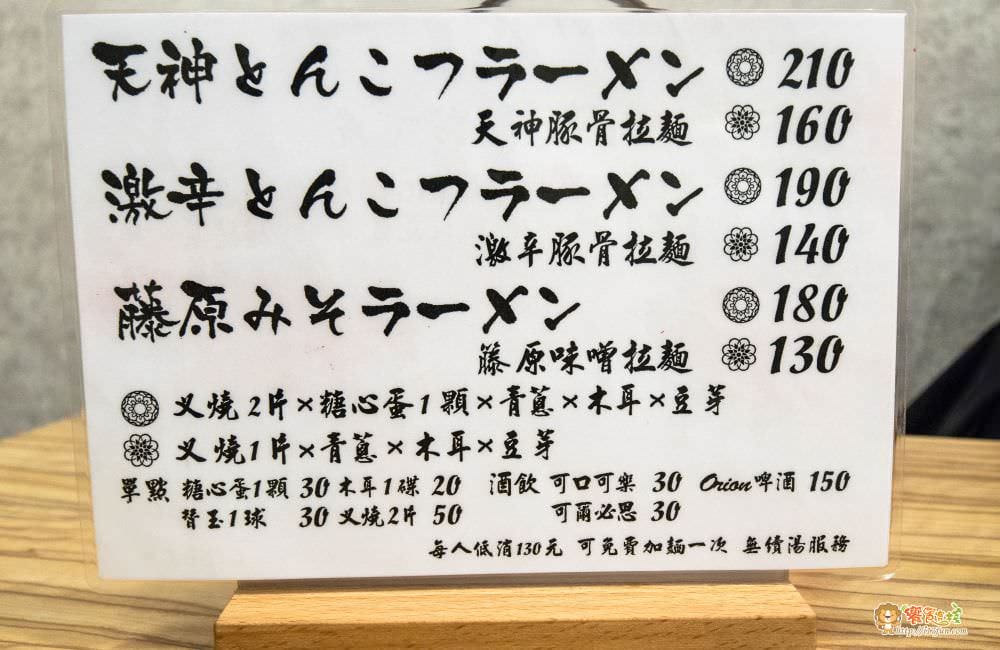 天神とんこつラーメン 210
天神豚骨拉麵 160
激辛とんこつラーメン 190
激辛豚骨拉麵 140
藤原みそラーメン 180
藤原味噌拉麵 130
叉燒2片×糖心蛋1顆×青蔥×木耳×豆芽
叉燒1片×青蔥×木耳×豆芽
單點 糖心蛋1顆 30 木耳1碟 20 酒飲 可口可樂 30 Orion啤酒 150
替玉1球 30 叉燒2片 50 可爾必思 30
每人低消130元 可免費加麵一次 無續湯服務
饗食進樂